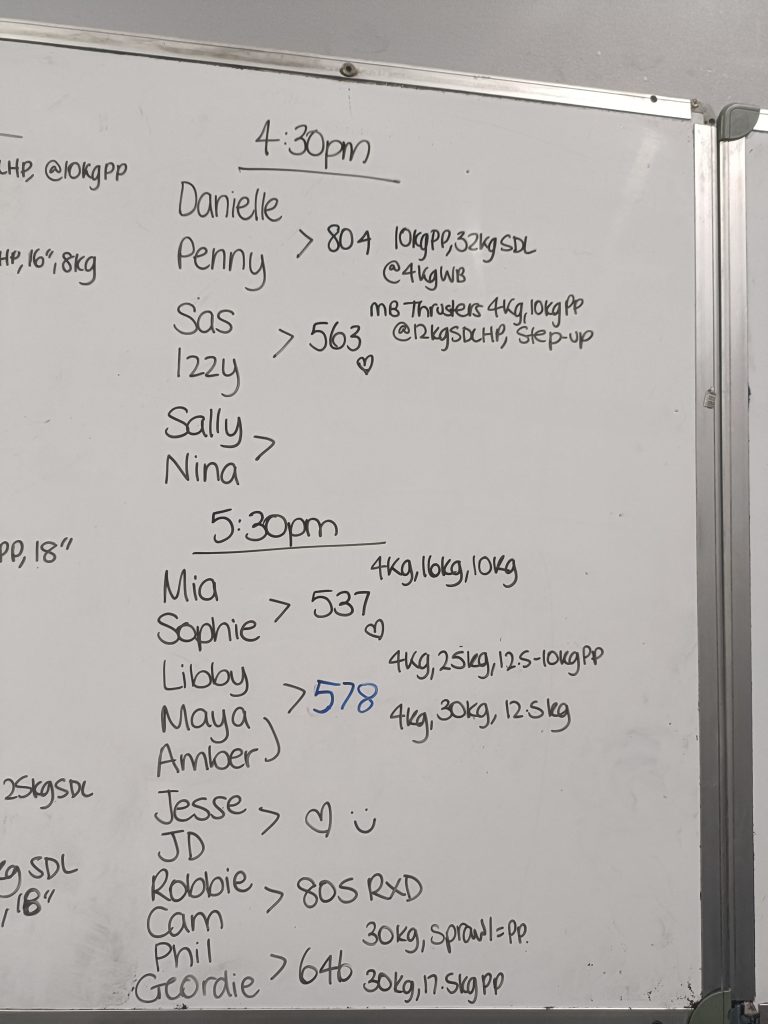 LHP, @10kgPP
HP, 16", 8kg
PP, 18"
25kgSDL
kg SDL
, 18"
4:30pm
Danielle
Penny
> 804 10kgPP, 32kgSDL
@4kgWB
Sas
Izzy
> 563 ♡ MB Thrusters 4kg, 10kgPP
@12kgSDLHP, Step-up
Sally
Nina
>
5:30pm
Mia
Sophie
> 537 ♡ 4kg, 16kg, 10kg
Libby
Maya
Amber
> 578 4kg, 25kg, 12.5-10kgPP
4kg, 30kg, 12.5kg
Jesse
JD
> ♡ :)
Robbie
Cam
> 805 RXD
Phil
Geordie
> 646 30kg, Sprawl=PP.
30kg, 17.5kgPP